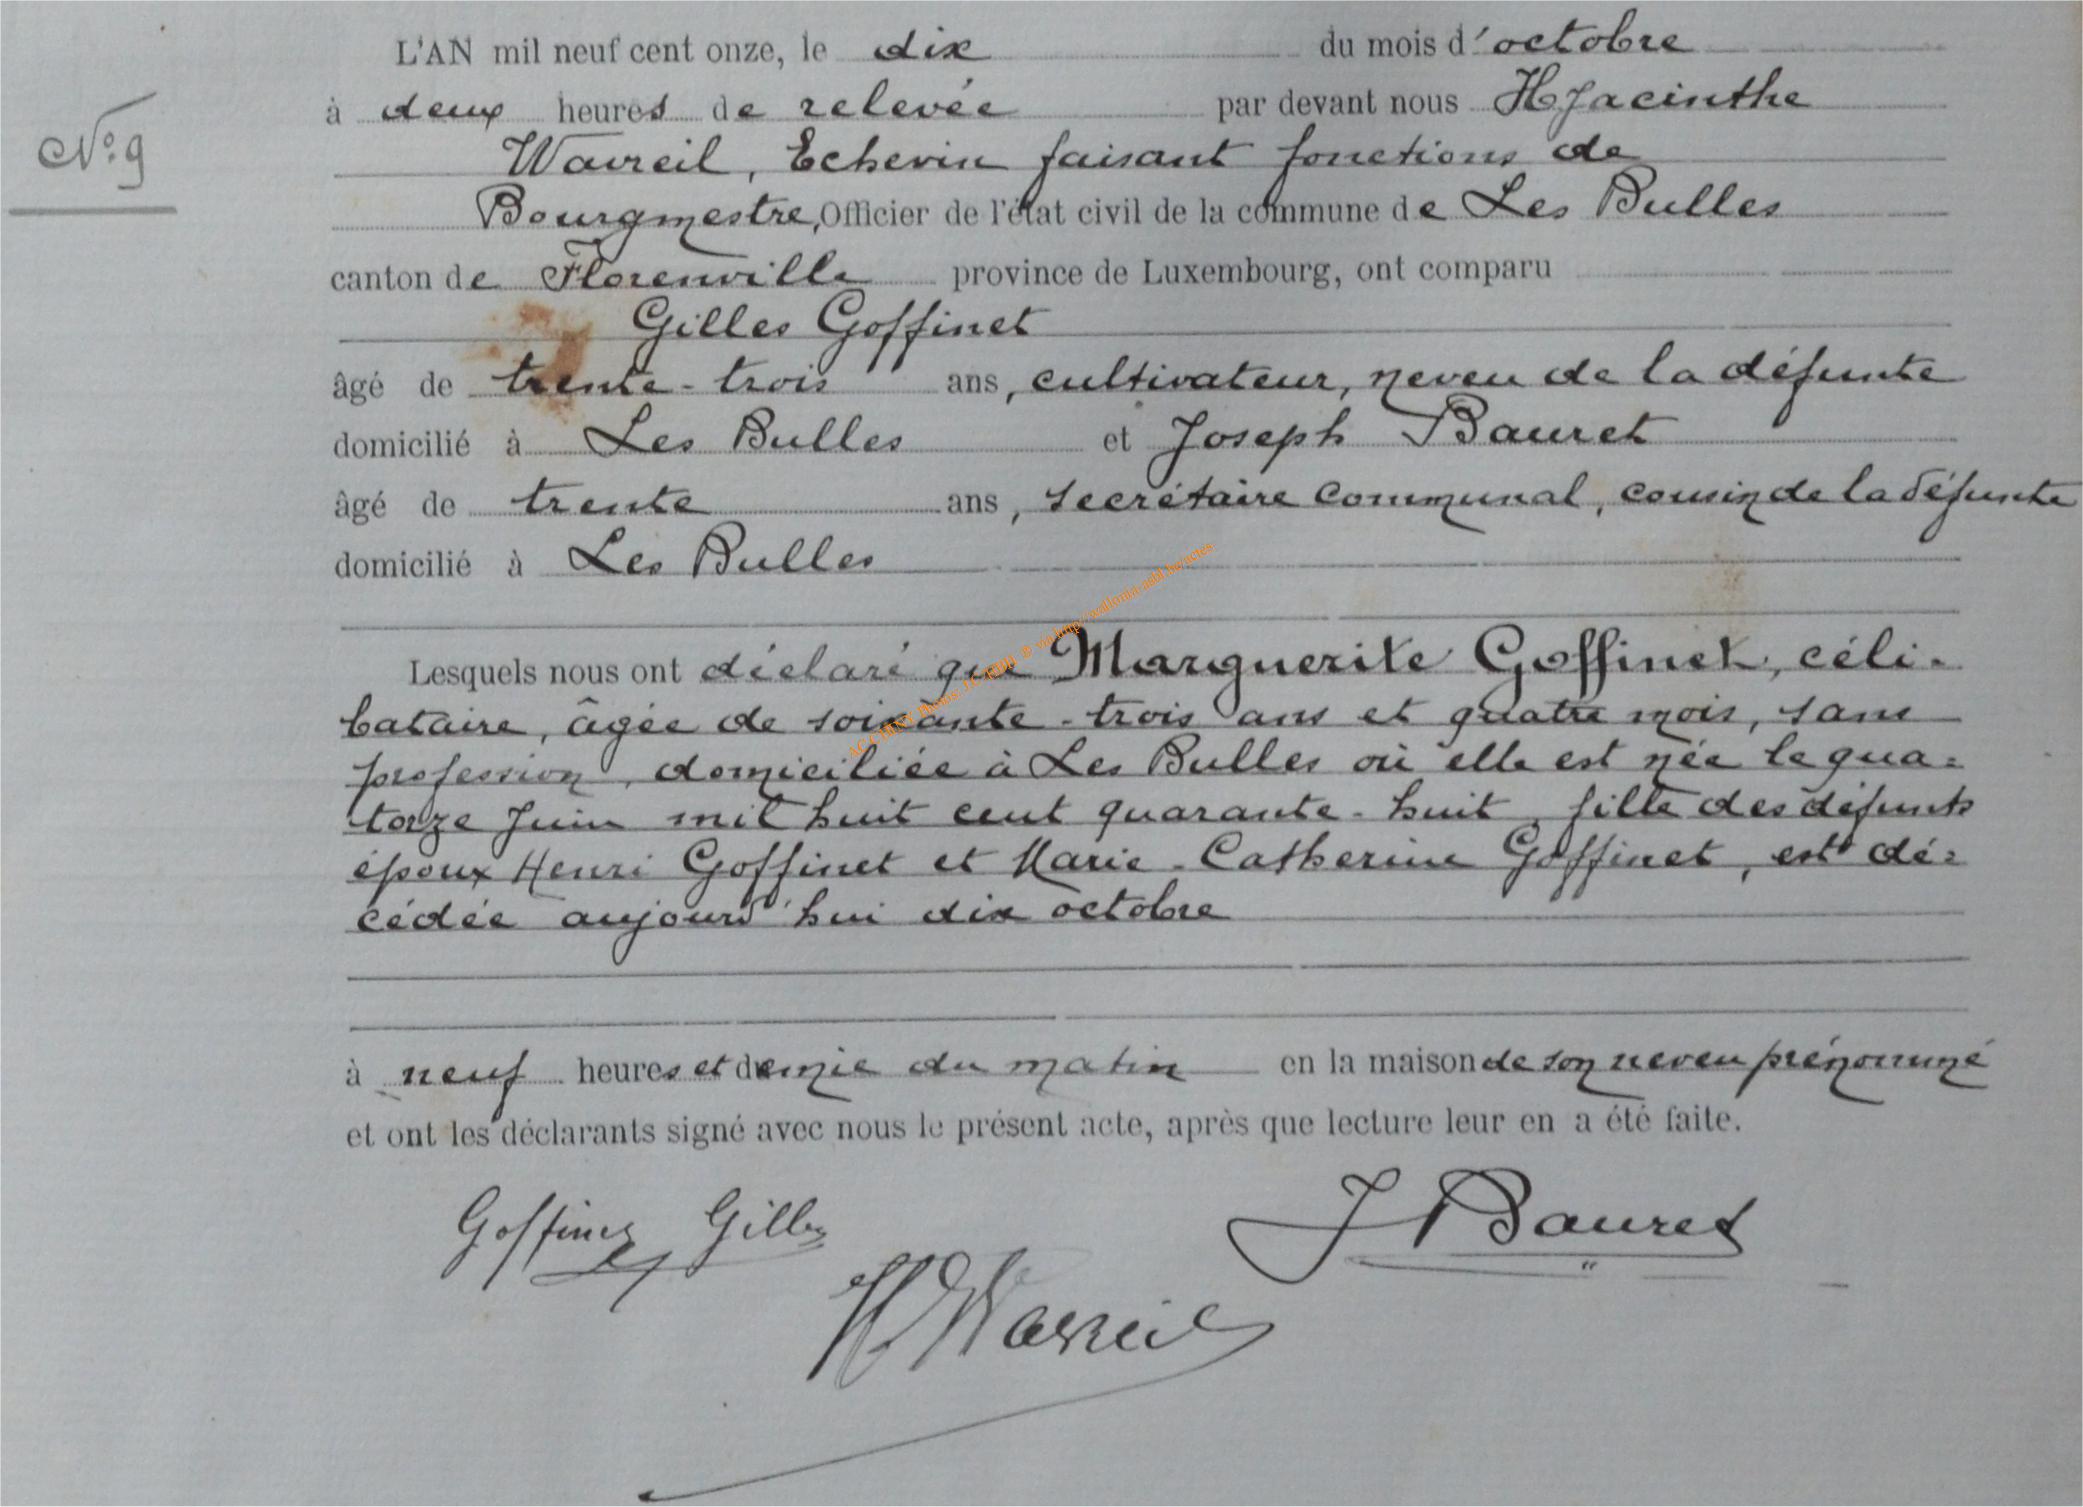 L'AN mil neuf cent onze, le dix du mois d'octobre
N° 9
à deux heures de relevée par devant nous Hyacinthe
Wavreil, Echevin faisant fonctions de
Bourgmestre, Officier de l'état civil de la commune de Les Bulles
canton de Florenville province de Luxembourg, ont comparu
Gilles Goffinet
âgé de trente-trois ans, cultivateur, neveu de la défunte
domicilié à Les Bulles et Joseph Bauret
âgé de trente ans, secrétaire communal, cousin de la défunte
domicilié à Les Bulles
Lesquels nous ont déclaré que Marguerite Goffinet, céli-
bataire, âgée de soixante-trois ans et quatre mois, sans
profession, domiciliée à Les Bulles où elle est née le qua=
torze Juin mil huit cent quarante-huit, fille des défunts
époux Henri Goffinet et Marie-Catherine Goffinet, est dé=
cédée aujourd'hui dix octobre
à neuf heures et demie du matin en la maison de son neveu prénommé
et ont les déclarants signé avec nous le présent acte, après que lecture leur en a été faite.
Goffinet Gilles J Bauret
H Wavreil